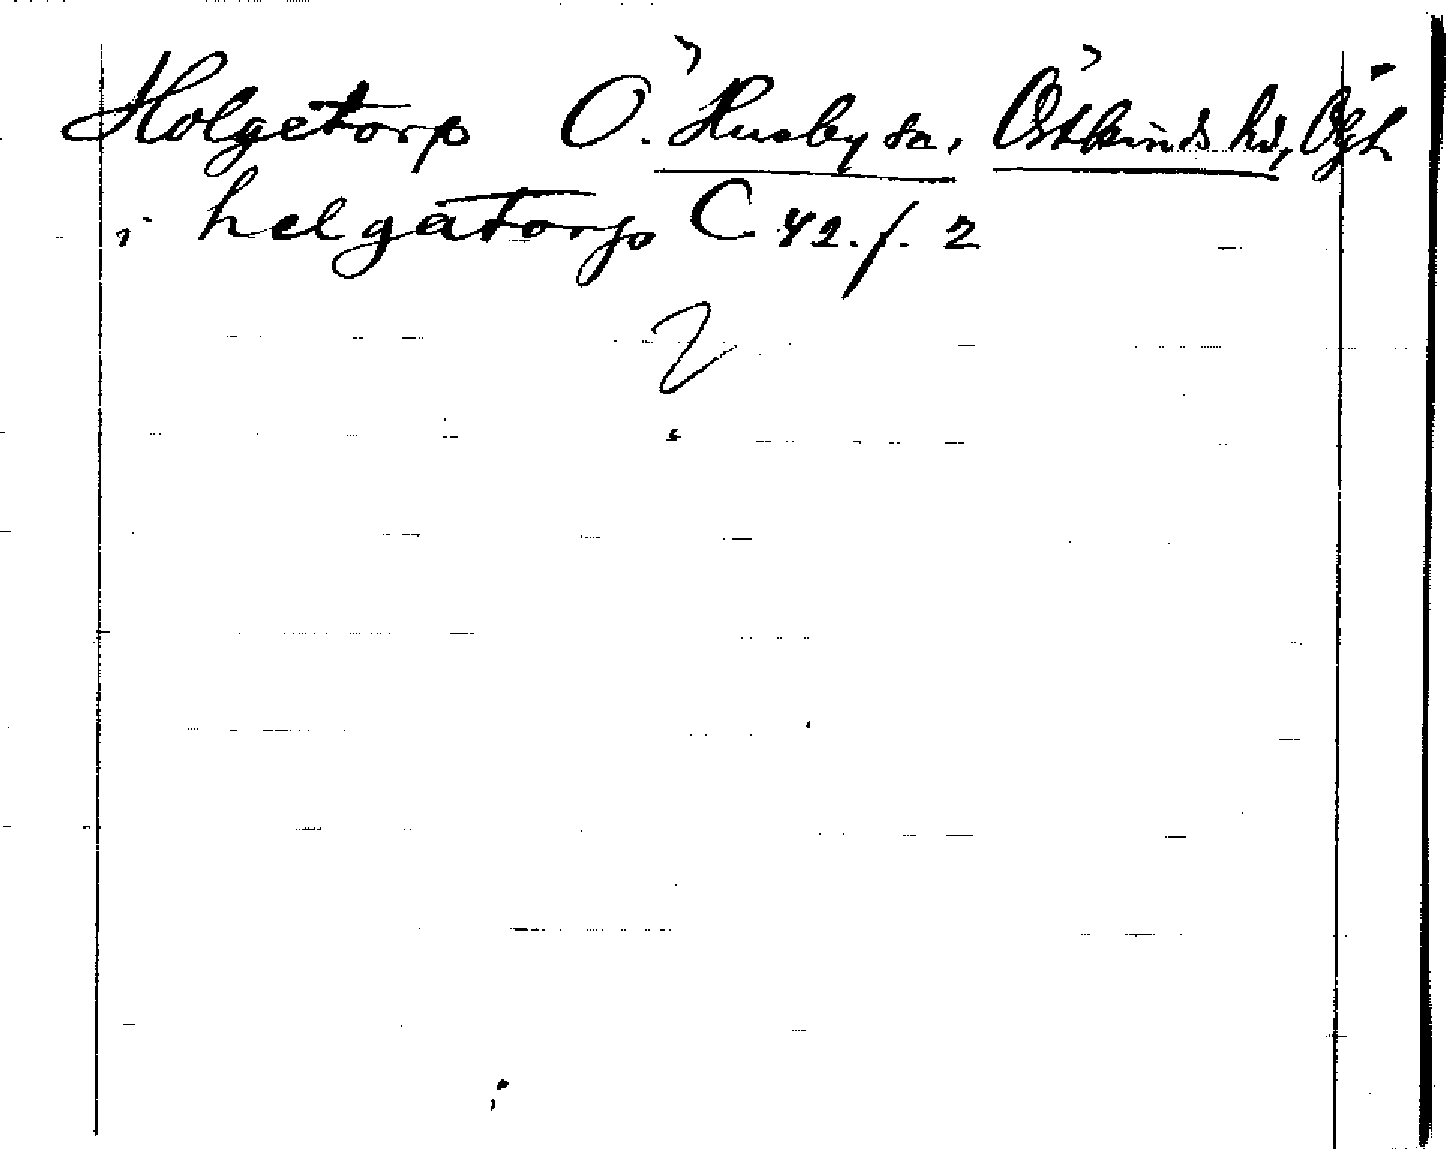 Holgetorp Ö. Husby sn, Östkinds hd, Ögl
i helgatorp C 42. f. 2